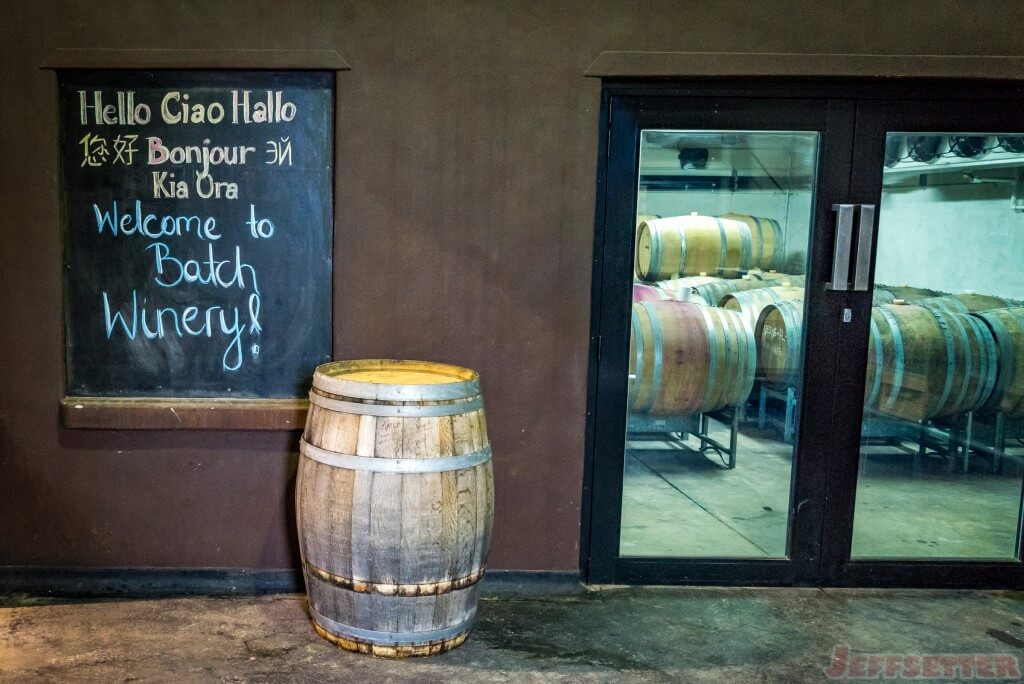 Hello Ciao Hallo
您好 Bonjour эй
Kia Ora
Welcome to
Batch
Winery!
JEFFSETTER